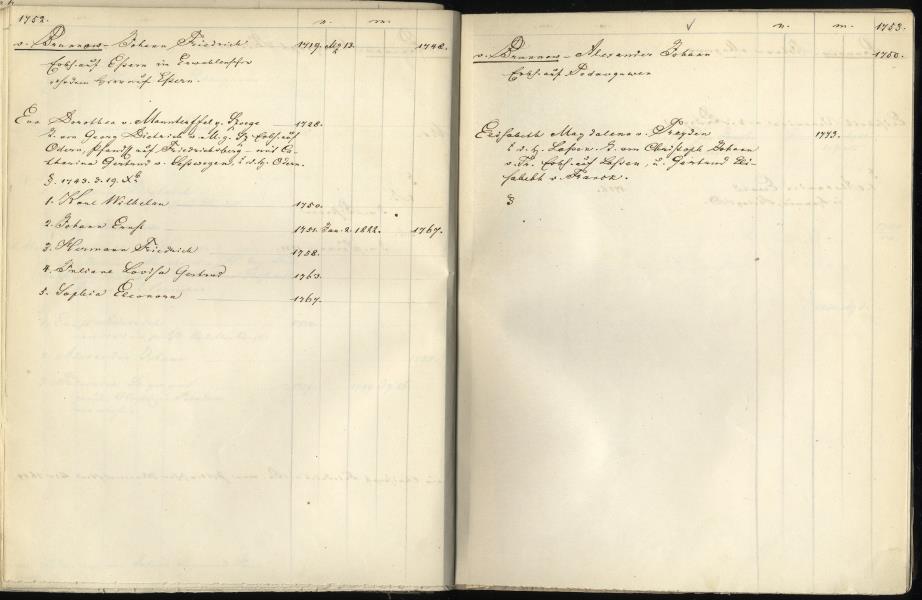 1752. n. m.
v. Brunnow - Johann Friedrich 1719. Mz 13. 1748.
Erbh. auf Essern in
auf Essern.
Eva Dorothea v. Manteuffel g. Szoege 1728.
T. von Georg Dietrich v. M. g. Sz. Erbh. auf
Odern, Pfandh. auf Friedrichsberg - und Ca-
tharina Gertrud v. d. H. Odern.
§. 1743. 3. 19. Xb
1. Karl Wilhelm 1750.
2. Johann Ernst 1751. Jan. 2. 1822. 1767.
3. Hermann Friedrich 1758.
4. Juliane Lovisa Gertrud 1763.
5. Sophia Eleonora 1767.
n. m. 1753.
v. Brunnow - Alexander Johann 1750.
Erbh. auf
Elisabeth Magdalena v. Treyden 1773.
a. d. H. T. von Christoph Johann
v. Tr. Erbh. auf u. Gertrud Eli-
sabeth v. Franck.
§